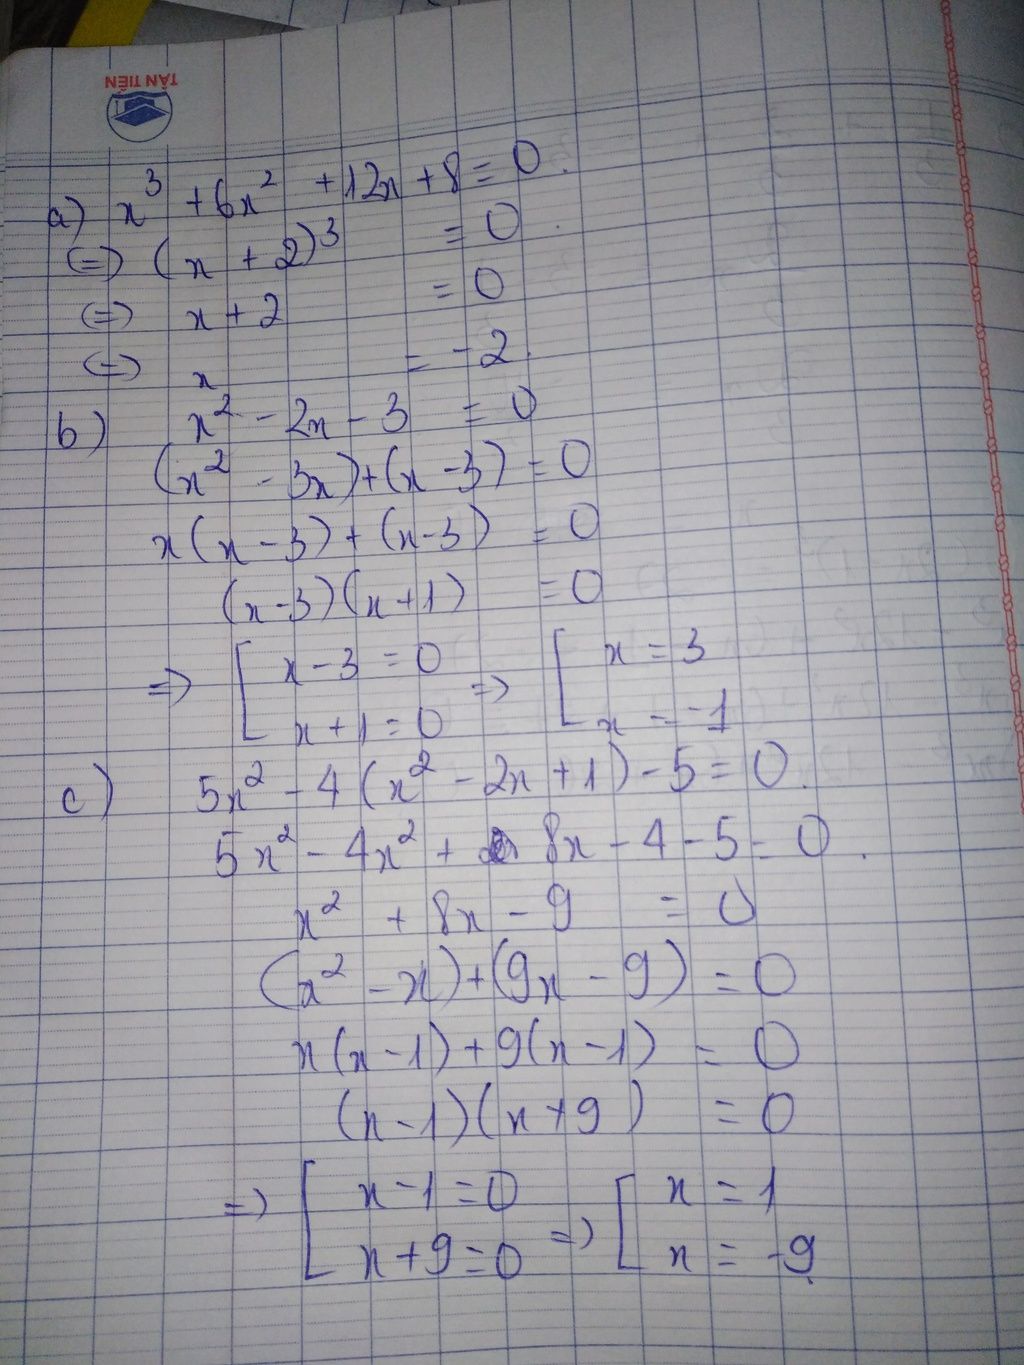 TÂN TIẾN
a) x³ + 6x² + 12x + 8 = 0.
(=) (x + 2)³ = 0
(=) x + 2 = 0
(=) x = -2.
b) x² - 2x - 3 = 0
(x² - 3x) + (x - 3) = 0
x(x - 3) + (x - 3) = 0
(x - 3)(x + 1) = 0
=> [ x - 3 = 0 => [ x = 3
x + 1 = 0 x = -1
c) 5x² - 4(x² - 2x + 1) - 5 = 0.
5x² - 4x² + 8x - 4 - 5 = 0.
x² + 8x - 9 = 0
(x² - x) + (9x - 9) = 0
x(x - 1) + 9(x - 1) = 0
(x - 1)(x + 9) = 0
=> [ x - 1 = 0 => [ x = 1
x + 9 = 0 x = -9.